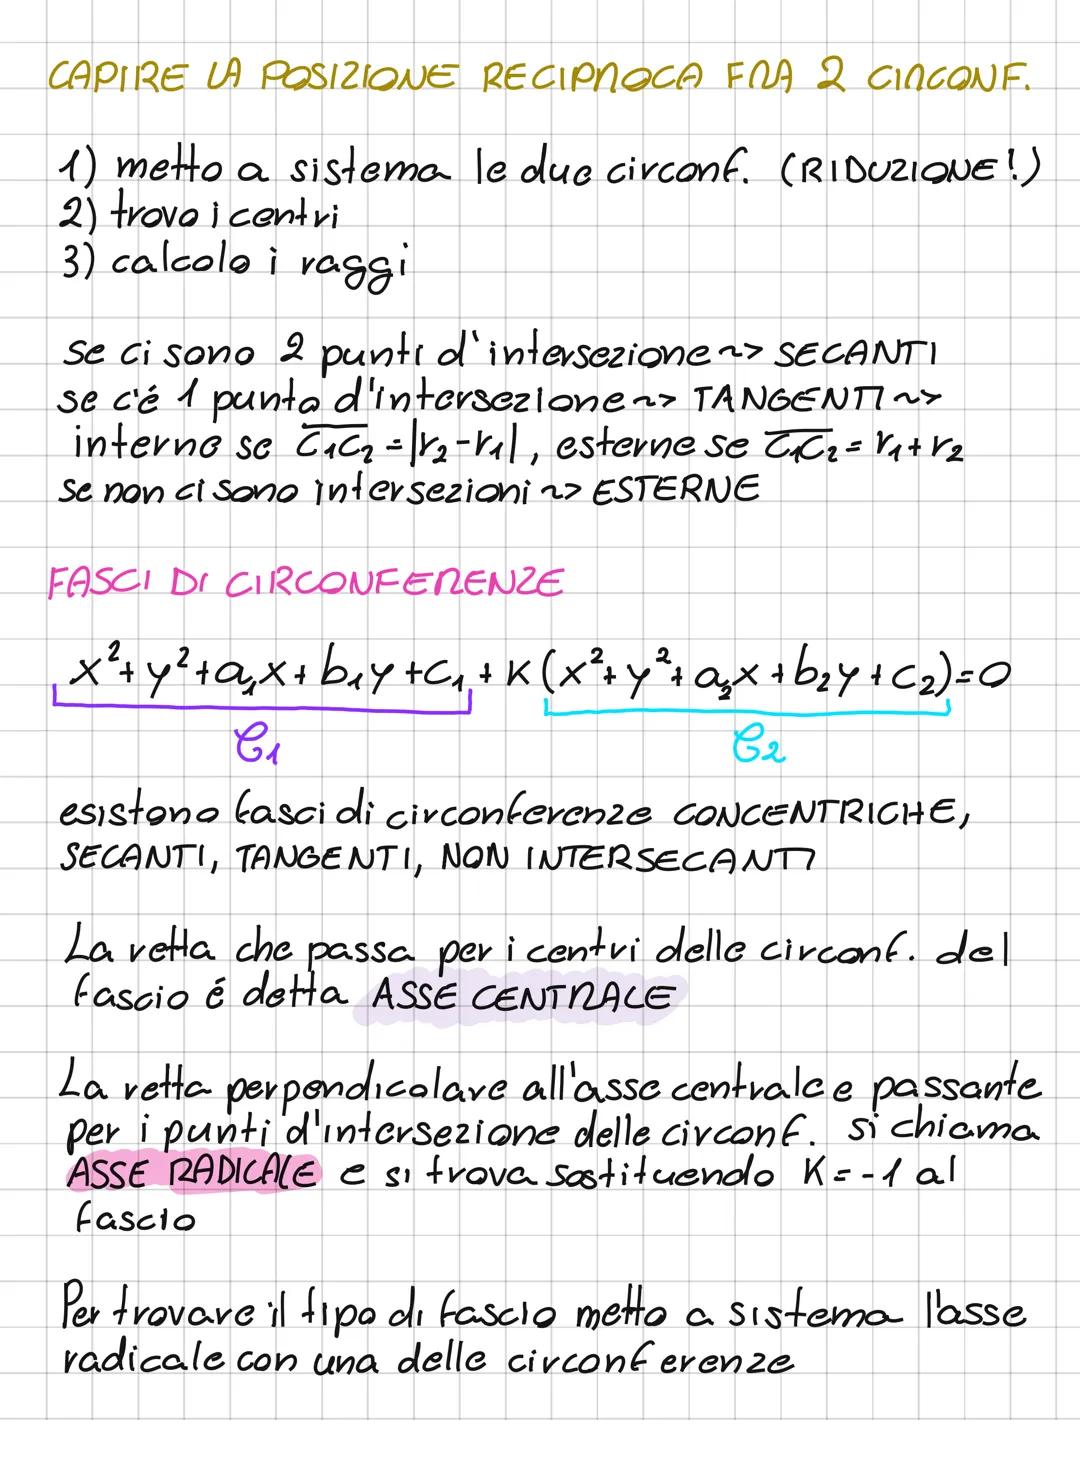 CAPIRE LA POSIZIONE RECIPROCA FRA 2 CIRCONF.
1) metto a sistema le due circonf. (RIDUZIONE!)
2) trovo i centri
3) calcolo i raggi
se ci sono 2 punti d'intersezione ~> SECANTI
se c'é 1 punto d'intersezione ~> TANGENTI ~>
interne se C₁C₂ = |r₂-r₁|, esterne se C₁C₂ = r₁+r₂
se non ci sono intersezioni ~> ESTERNE
FASCI DI CIRCONFERENZE
x²+y²+a₁x+b₁y+c₁+K(x²+y²+a₂x+b₂y+c₂)=0
C₁ C₂
esistono fasci di circonferenze CONCENTRICHE,
SECANTI, TANGENTI, NON INTERSECANTI
La retta che passa per i centri delle circonf. del
fascio é detta ASSE CENTRALE
La retta perpendicolare all'asse centrale e passante
per i punti d'intersezione delle circonf. si chiama
ASSE RADICALE e si trova sostituendo K=-1 al
fascio
Per trovare il tipo di fascio metto a sistema l'asse
radicale con una delle circonferenze